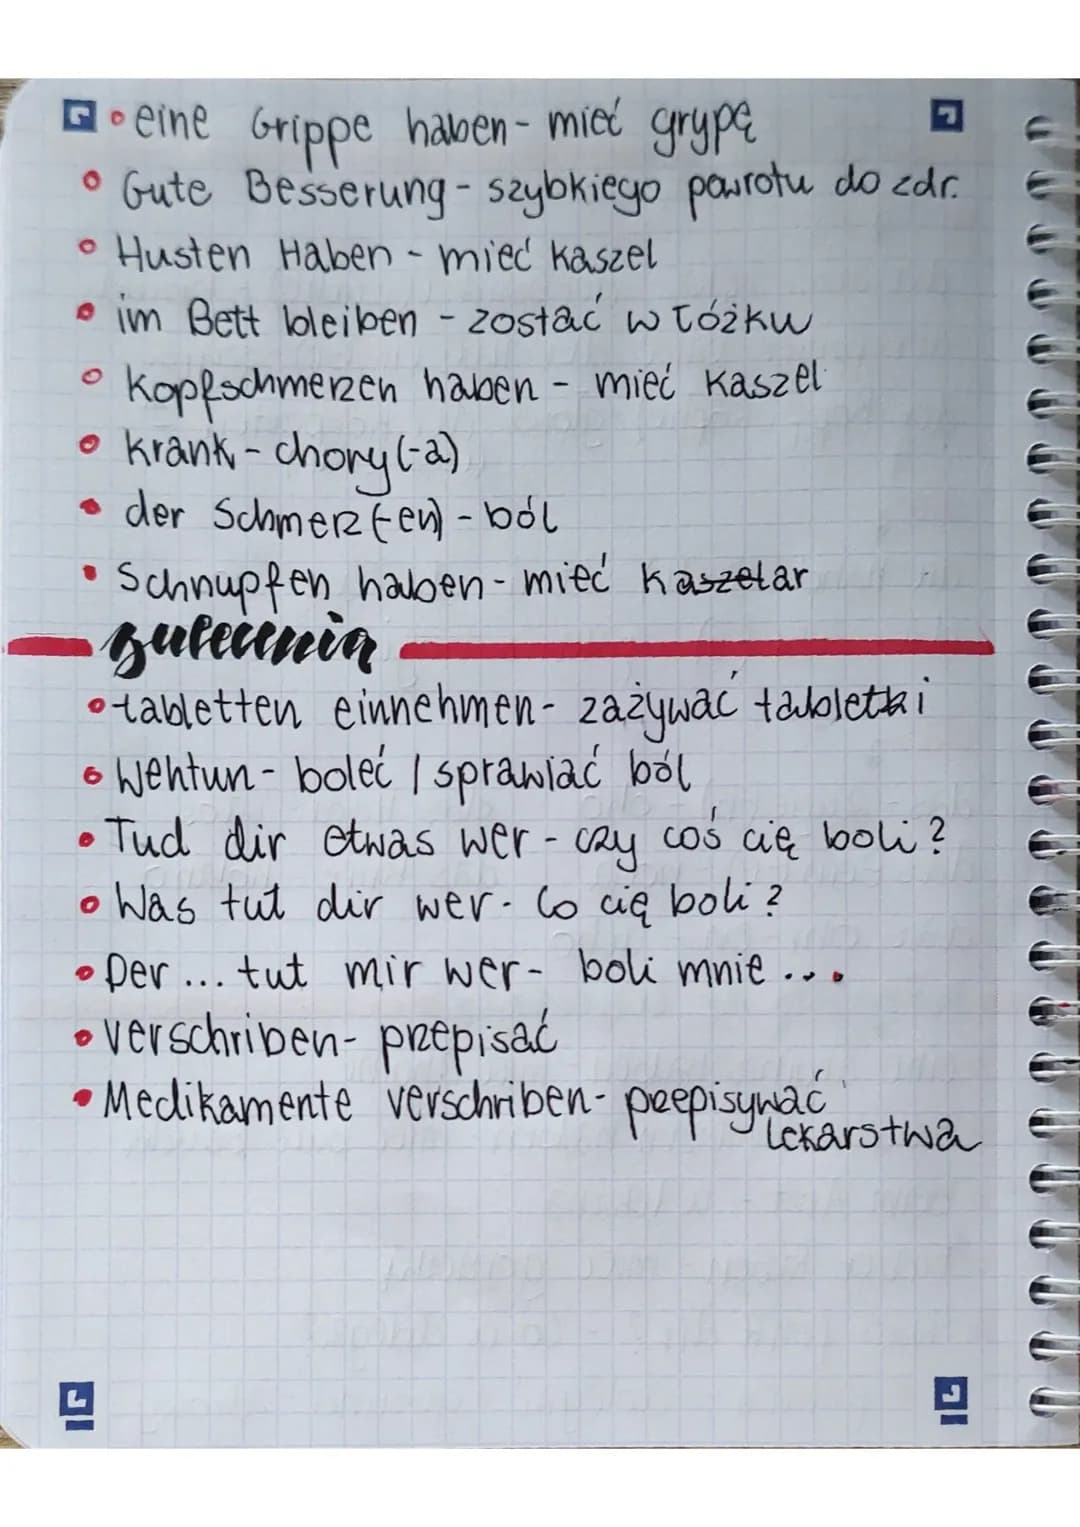 eine Grippe haben - mieć grypę
Gute Besserung - szybkiego powrotu do zdr.
Husten Haben - mieć kaszel
im Bett bleiben - zostać w łóżku
Kopfschmerzen haben - mieć kaszel
krank - chory (-a)
der Schmerz (-en) - ból
Schnupfen haben - mieć kaszelar
tabletten einnehmen - zażywać tabletki
Wehtun - boleć / sprawiać ból
Tud dir etwas wer - czy coś cię boli?
Was tut dir wer - Co cię boli?
Der ... tut mir wer - boli mnie ...
verschriben - przepisać
Medikamente verschriben - przepisywać
lekarstwa